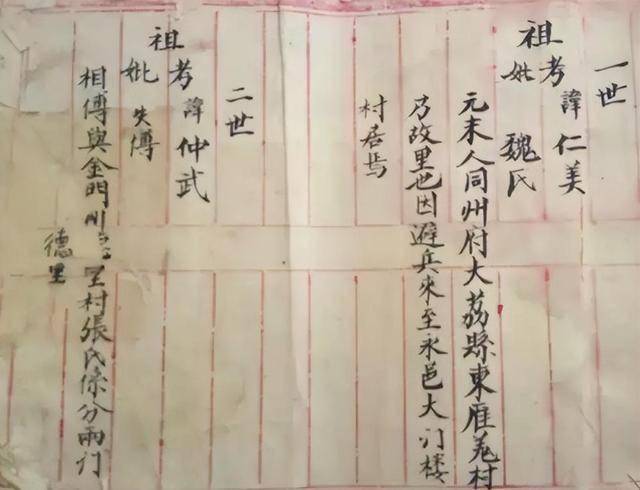 一世
祖
考諱仁美
妣魏氏
元末人同州府大荔縣東雁羌村
乃故里也因避兵來至永邑大门楼
村居焉
二世
祖
考諱仲武
妣失傳
相傳與金門川里村張氏係分兩门
德里